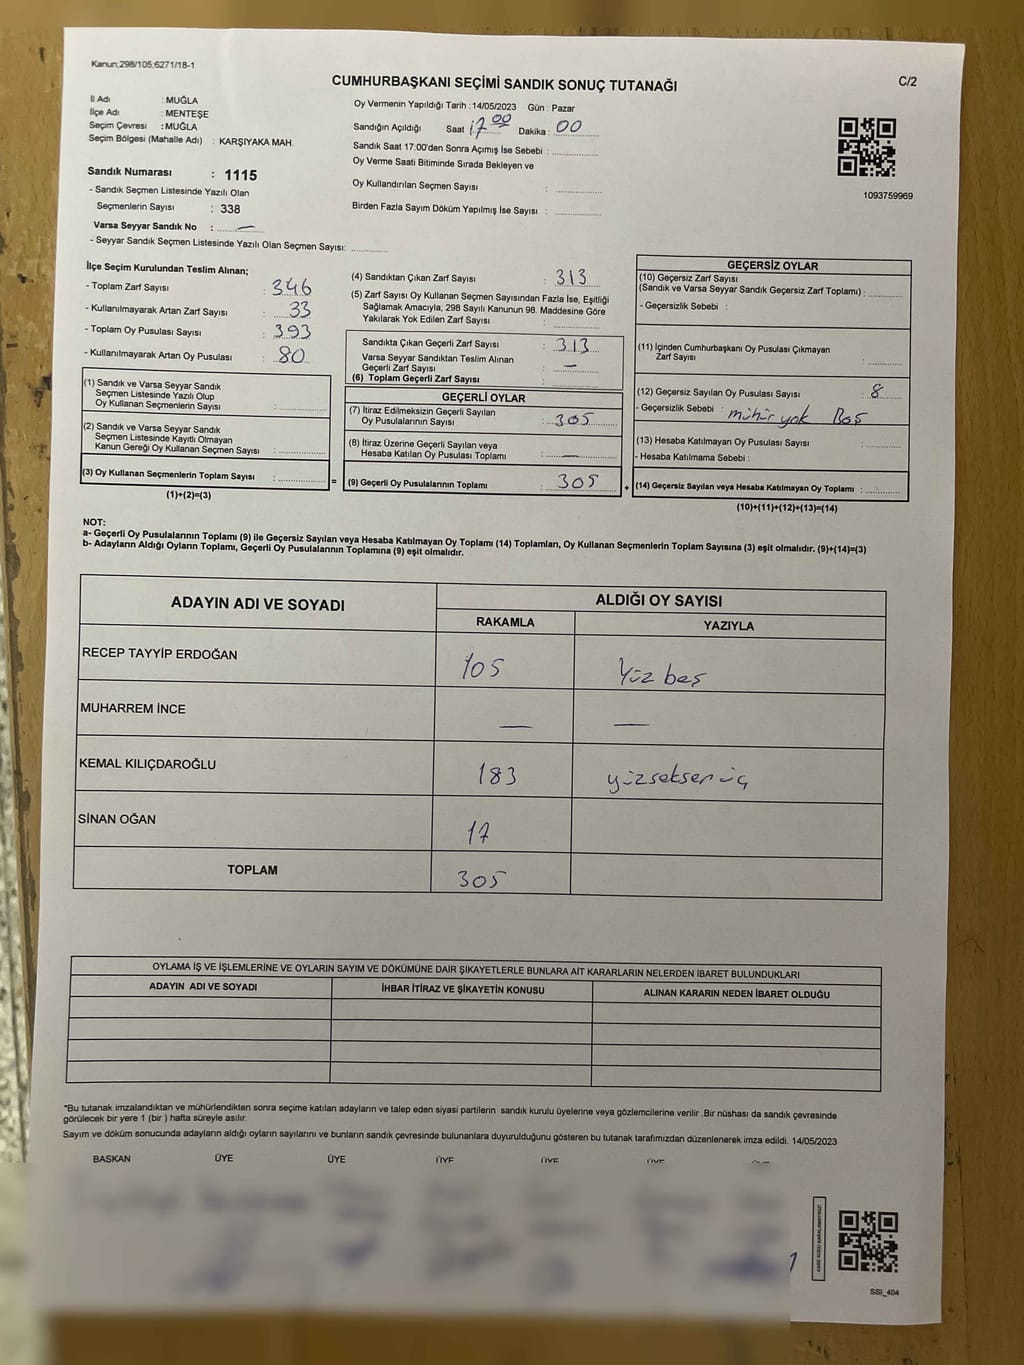 Kanun;298/105;6271/18-1
CUMHURBAŞKANI SEÇİMİ SANDIK SONUÇ TUTANAĞI
C/2
İl Adı : MUĞLA
İlçe Adı : MENTEŞE
Seçim Çevresi : MUĞLA
Seçim Bölgesi (Mahalle Adı) : KARŞIYAKA MAH.
Sandık Numarası : 1115
- Sandık Seçmen Listesinde Yazılı Olan
Seçmenlerin Sayısı : 338
Varsa Seyyar Sandık No : —
- Seyyar Sandık Seçmen Listesinde Yazılı Olan Seçmen Sayısı:
Oy Vermenin Yapıldığı Tarih :14/05/2023 Gün : Pazar
Sandığın Açıldığı Saat 17 00 Dakika : 00
Sandık Saat 17:00'den Sonra Açımış İse Sebebi :
Oy Verme Saati Bitiminde Sırada Bekleyen ve
Oy Kullandırılan Seçmen Sayısı :
Birden Fazla Sayım Döküm Yapılmış İse Sayısı :
1093759969
İlçe Seçim Kurulundan Teslim Alınan;
- Toplam Zarf Sayısı : 346
- Kullanılmayarak Artan Zarf Sayısı : 33
- Toplam Oy Pusulası Sayısı : 393
- Kullanılmayarak Artan Oy Pusulası : 80
(1) Sandık ve Varsa Seyyar Sandık
Seçmen Listesinde Yazılı Olup
Oy Kullanan Seçmenlerin Sayısı :
(2) Sandık ve Varsa Seyyar Sandık
Seçmen Listesinde Kayıtlı Olmayan
Kanun Gereği Oy Kullanan Seçmen Sayısı :
(3) Oy Kullanan Seçmenlerin Toplam Sayısı : =
(1)+(2)=(3)
(4) Sandıktan Çıkan Zarf Sayısı : 313
(5) Zarf Sayısı Oy Kullanan Seçmen Sayısından Fazla İse, Eşitliği
Sağlamak Amacıyla; 298 Sayılı Kanunun 98. Maddesine Göre
Yakılarak Yok Edilen Zarf Sayısı :
Sandıkta Çıkan Geçerli Zarf Sayısı : 313
Varsa Seyyar Sandıktan Teslim Alınan
Geçerli Zarf Sayısı : —
(6) Toplam Geçerli Zarf Sayısı :
GEÇERLİ OYLAR
(7) İtiraz Edilmeksizin Geçerli Sayılan
Oy Pusulalarının Sayısı : 305
(8) İtiraz Üzerine Geçerli Sayılan veya
Hesaba Katılan Oy Pusulası Toplamı : —
(9) Geçerli Oy Pusulalarının Toplamı : 305 +
GEÇERSİZ OYLAR
(10) Geçersiz Zarf Sayısı
(Sandık ve Varsa Seyyar Sandık Geçersiz Zarf Toplamı) :
- Geçersizlik Sebebi :
(11) İçinden Cumhurbaşkanı Oy Pusulası Çıkmayan
Zarf Sayısı :
(12) Geçersiz Sayılan Oy Pusulası Sayısı : 8
- Geçersizlik Sebebi : mühür yok Boş
(13) Hesaba Katılmayan Oy Pusulası Sayısı :
- Hesaba Katılmama Sebebi :
(14) Geçersiz Sayılan veya Hesaba Katılmayan Oy Toplamı :
(10)+(11)+(12)+(13)=(14)
NOT:
a- Geçerli Oy Pusulalarının Toplamı (9) ile Geçersiz Sayılan veya Hesaba Katılmayan Oy Toplamı (14) Toplamları, Oy Kullanan Seçmenlerin Toplam Sayısına (3) eşit olmalıdır. (9)+(14)=(3)
b- Adayların Aldığı Oyların Toplamı, Geçerli Oy Pusulalarının Toplamına (9) eşit olmalıdır.
ADAYIN ADI VE SOYADI ALDIĞI OY SAYISI
RAKAMLA YAZIYLA
RECEP TAYYİP ERDOĞAN 105 Yüz beş
MUHARREM İNCE — —
KEMAL KILIÇDAROĞLU 183 yüzseksen üç
SİNAN OĞAN 17
TOPLAM 305
OYLAMA İŞ VE İŞLEMLERİNE VE OYLARIN SAYIM VE DÖKÜMÜNE DAİR ŞİKAYETLERLE BUNLARA AİT KARARLARIN NELERDEN İBARET BULUNDUKLARI
ADAYIN ADI VE SOYADI İHBAR İTİRAZ VE ŞİKAYETİN KONUSU ALINAN KARARIN NEDEN İBARET OLDUĞU
*Bu tutanak imzalandıktan ve mühürlendikten sonra seçime katılan adayların ve talep eden siyasi partilerin sandık kurulu üyelerine veya gözlemcilerine verilir .Bir nüshası da sandık çevresinde
görülecek bir yere 1 (bir ) hafta süreyle asılır.
Sayım ve döküm sonucunda adayların aldığı oyların sayılarını ve bunların sandık çevresinde bulunanlara duyurulduğunu gösteren bu tutanak tarafımızdan düzenlenerek imza edildi. 14/05/2023
BAŞKAN ÜYE ÜYE ÜYE ÜYE ÜYE
KARE KODU KARALAMAYINIZ!
SSI_404